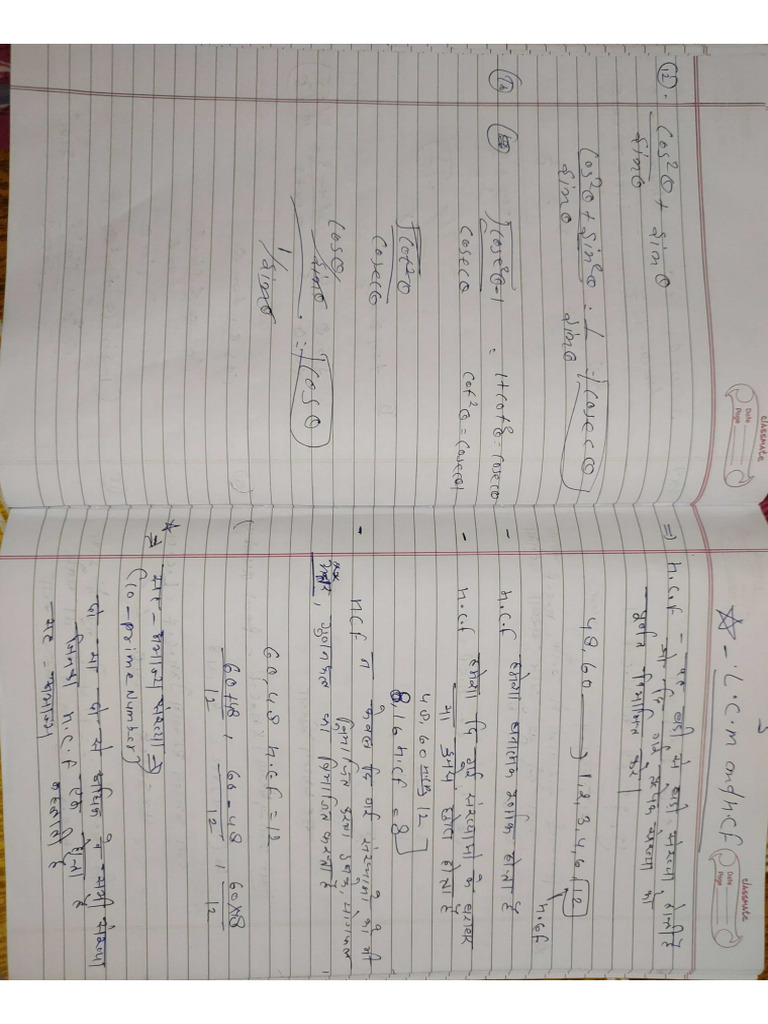 classmate
Date
Page
(12). cos²θ/sinθ + sinθ
cos²θ + sin²θ / sinθ = 1/sinθ = cosecθ
√cosec²θ-1 / cosecθ = 1+cot²θ = cosecθ
cot²θ = cosecθ1
√cot²θ / cosecθ
cosθ/sinθ / 1/sinθ = cosθ
classmate
Date
Page
☆ - L.C.M and HCF
⇒ H.C.F - वह बड़ी से बड़ी संख्या होती है
जो दि गई प्रत्येक संख्या को
पूर्णतः विभाजित करे।
48, 60 → 1, 2, 3, 4, 6, 12
H.C.F
- H.C.F हमेशा धनात्मक पूर्णांक होता है
- H.C.F हमेशा दि गई संख्याओं के बराबर
या इनसे छोटा होता है
48, 60 12
8, 16 H.C.F = 8
- HCF न केवल दि गई संख्याओं को भी
विभाजित करता इनके, योगफल
अंतर, गुणनफल को विभाजित करता है
60, 48 H.C.F = 12
60+48/12, 60-48/12, 60×48/12
☆ ⇒ सह-अभाज्य संख्या ⇒
(co-prime Number)
दो या दो से अधिक संख्या
जिनका H.C.F एक होता है
सह-अभाज्य कहलाती है